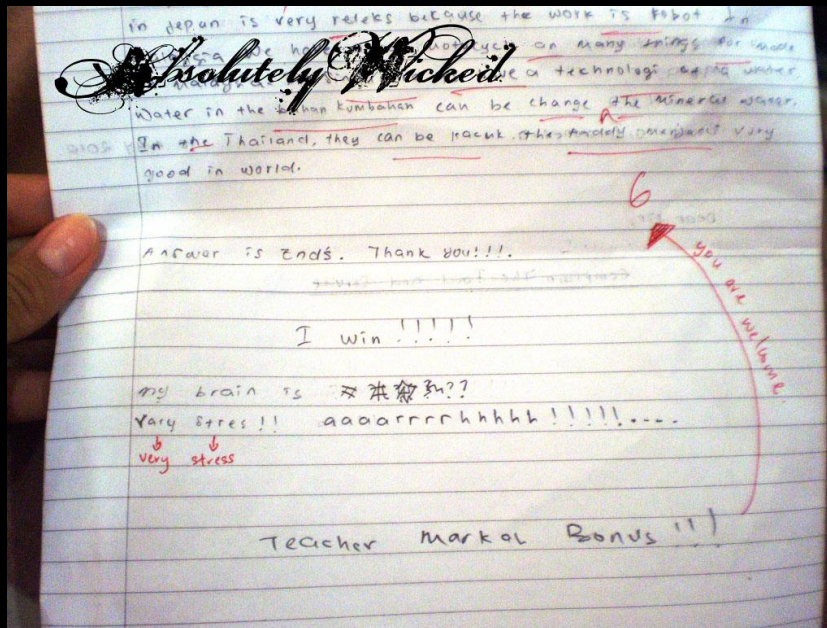 in jepun is very releks because the work is robot in
we have motorcycle an many things for made
Absolutely Wicked.
a technologi water
water in the bahan kumbahan can be change the mineral water.
In the Thailand, they can be kacuk the very
good in world.
6
Answer is Ends. Thank you!!!.
you are welcome.
I win !!!!!
my brain is ??
Vary stres !! aaaarrrrhhhhh !!!!!....
very stress
Teacher Bonus !!!